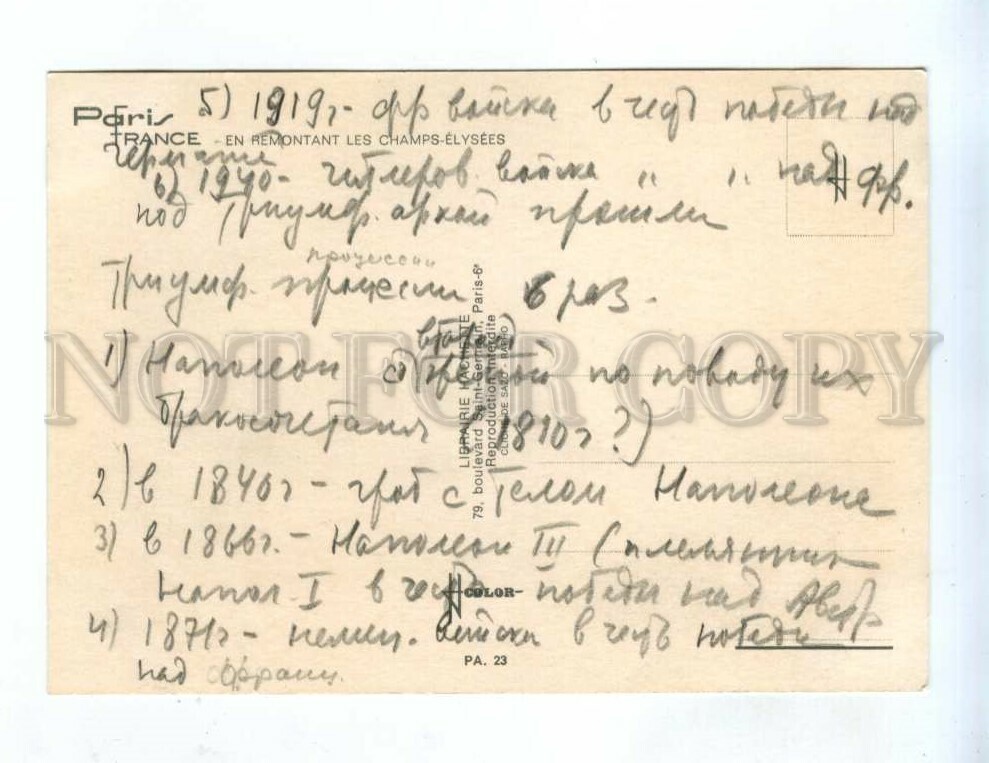 Paris
FRANCE EN REMONTANT LES CHAMPS-ÉLYSÉES
5) 1919г - фр войска в честь победы над
Германи
6) 1940 - гитлеров. войска " " над фр.
под Триумф. аркой прошли
процессии
Триумф. процессии 6 раз.
второй
1) Наполеон со женой по поводу их
бракосочетания (1810г?)
2) в 1840г - гроб с телом Наполеона
3) в 1866г. - Наполеон III (племянник
Напол. I в честь победы над Австр
4) 1871г - немец. войска в честь победы
над Франц.
LIBRAIRIE HACHETTE
79, boulevard Saint-Germain, Paris-6e
Reproduction interdite
COLOR
PA. 23
NOT FOR COPY